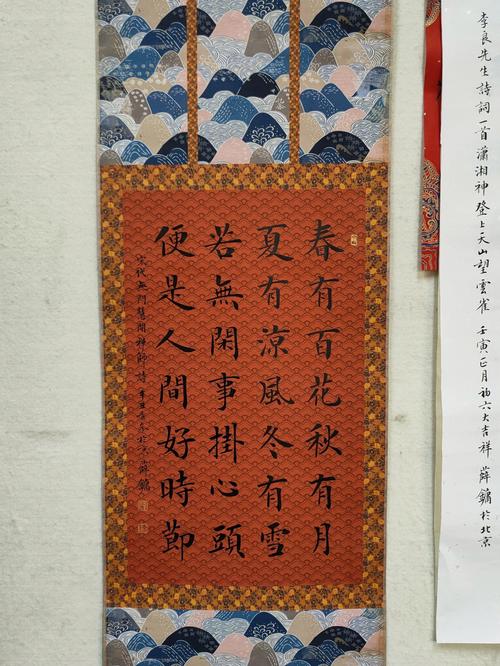 春有百花秋有月
夏有涼風冬有雪
若無閑事掛心頭
便是人間好時節
宋代無門慧開禪師詩 辛丑冬於京 薛鏞
李良先生詩詞一首瀟湘神登上天山望雲雀 壬寅正月初六大吉祥 薛鏞於北京